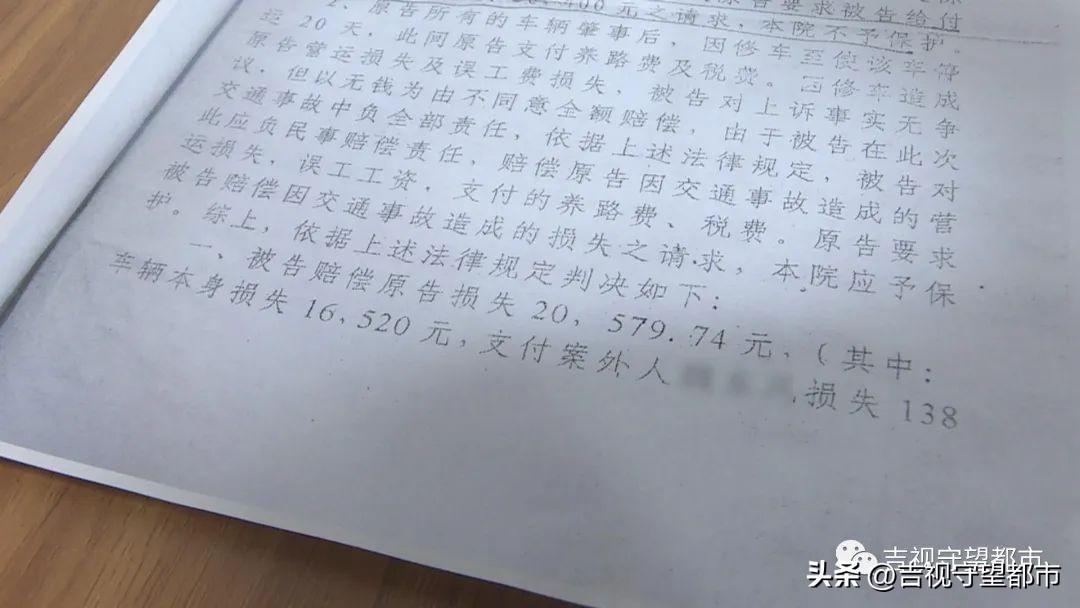 原告要求被告给付
400元之请求,本院不予保护。
2、原告所有的车辆肇事后,因修车至使该车停
运20天,此间原告支付养路费及税费。因修车造成
原告营运损失及误工费损失,被告对上诉事实无争
议,但以无钱为由不同意全额赔偿,由于被告在此次
交通事故中负全部责任,依据上述法律规定,被告对
此应负民事赔偿责任,赔偿原告因交通事故造成的营
运损失,误工工资,支付的养路费、税费。原告要求
被告赔偿因交通事故造成的损失之请求,本院应予保
护。综上,依据上述法律规定判决如下:
一、被告赔偿原告损失20,579.74元,(其中:
车辆本身损失16,520元,支付案外人 损失138
吉视守望都市
头条 @吉视守望都市